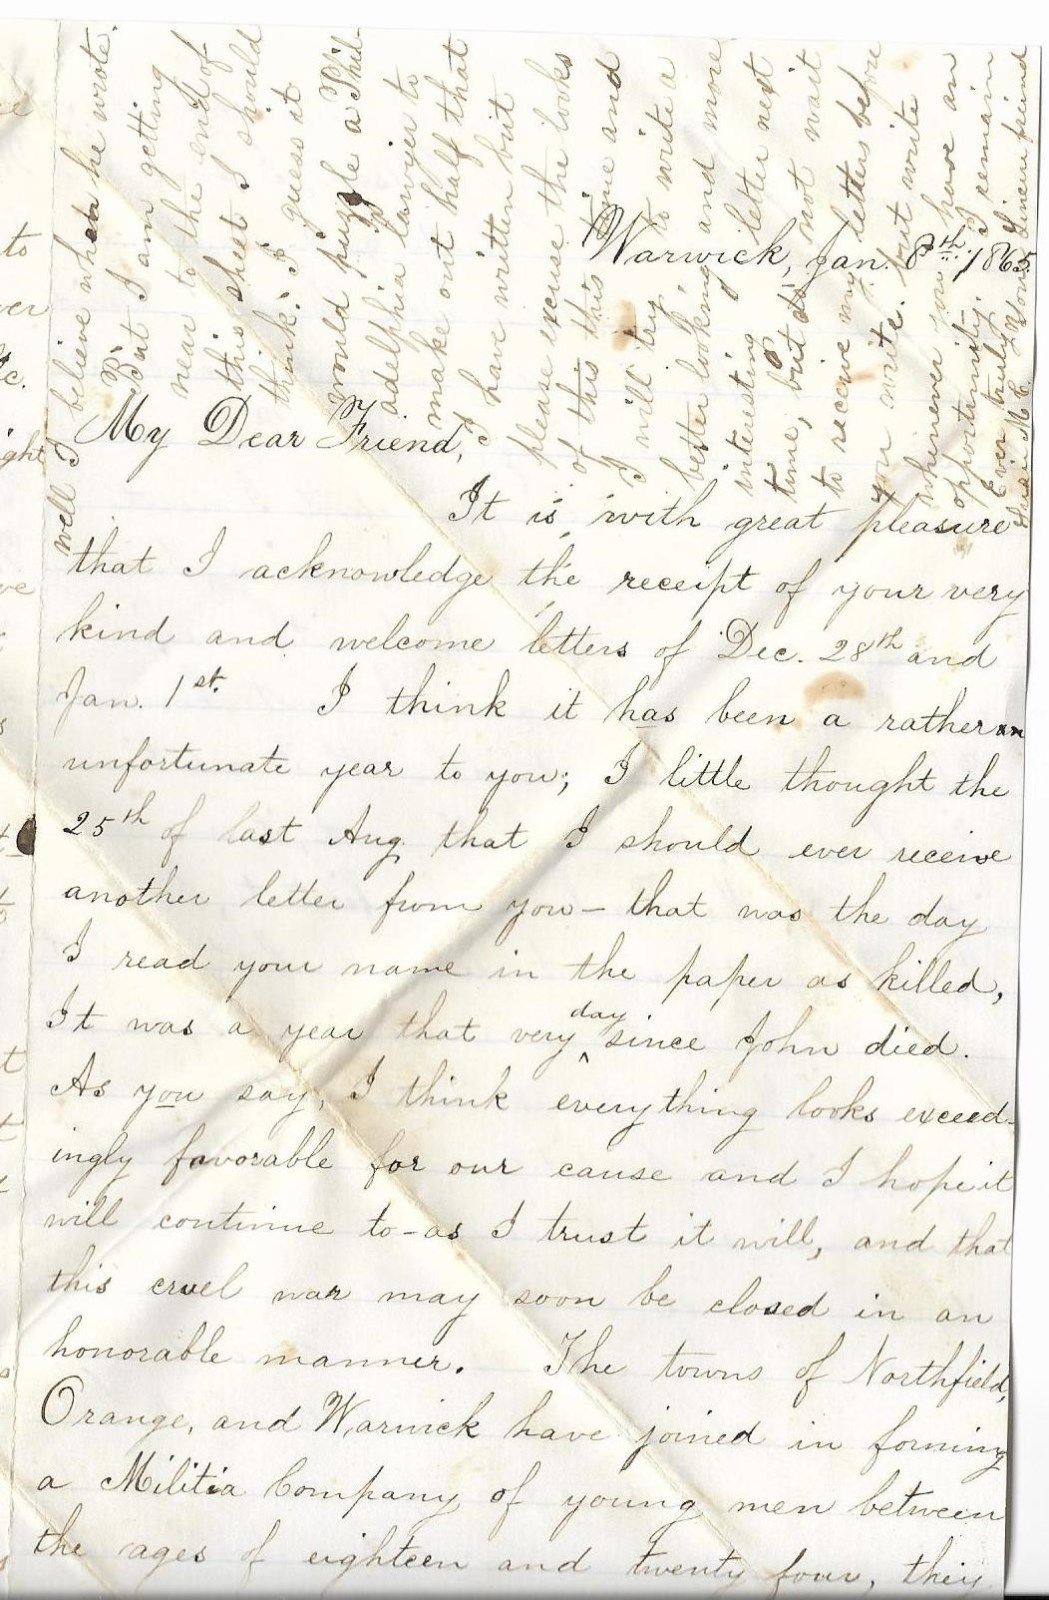 Warwick, Jan. 8th 1865.
My Dear Friend,
It is with great pleasure
that I acknowledge the receipt of your very
kind and welcome letters of Dec. 28th and
Jan. 1st. I think it has been a rather an
unfortunate year to you; I little thought the
25th of last Aug. that I should ever receive
another letter from you — that was the day
I read your name in the paper as killed,
It was a year that very day since John died.
As you say, I think everything looks exceed-
ingly favorable for our cause and I hope it
will continue to — as I trust it will, and that
this cruel war may soon be closed in an
honorable manner. The towns of Northfield,
Orange, and Warwick have joined in forming
a Militia Company of young men between
the ages of eighteen and twenty four, they
well I believe when he wrote.
But I am getting
near to the end of
this sheet I should
think. I guess it
would puzzle a Phil-
adelphia lawyer to
make out half that
I have written but
please excuse the looks
of this this time and
I will try to write a
better looking and more
interesting letter next
time, but do not wait
to receive my letters before
you write. but write
whenever you have an
opportunity. I remain
Ever truly Your Sincere friend
M. E.